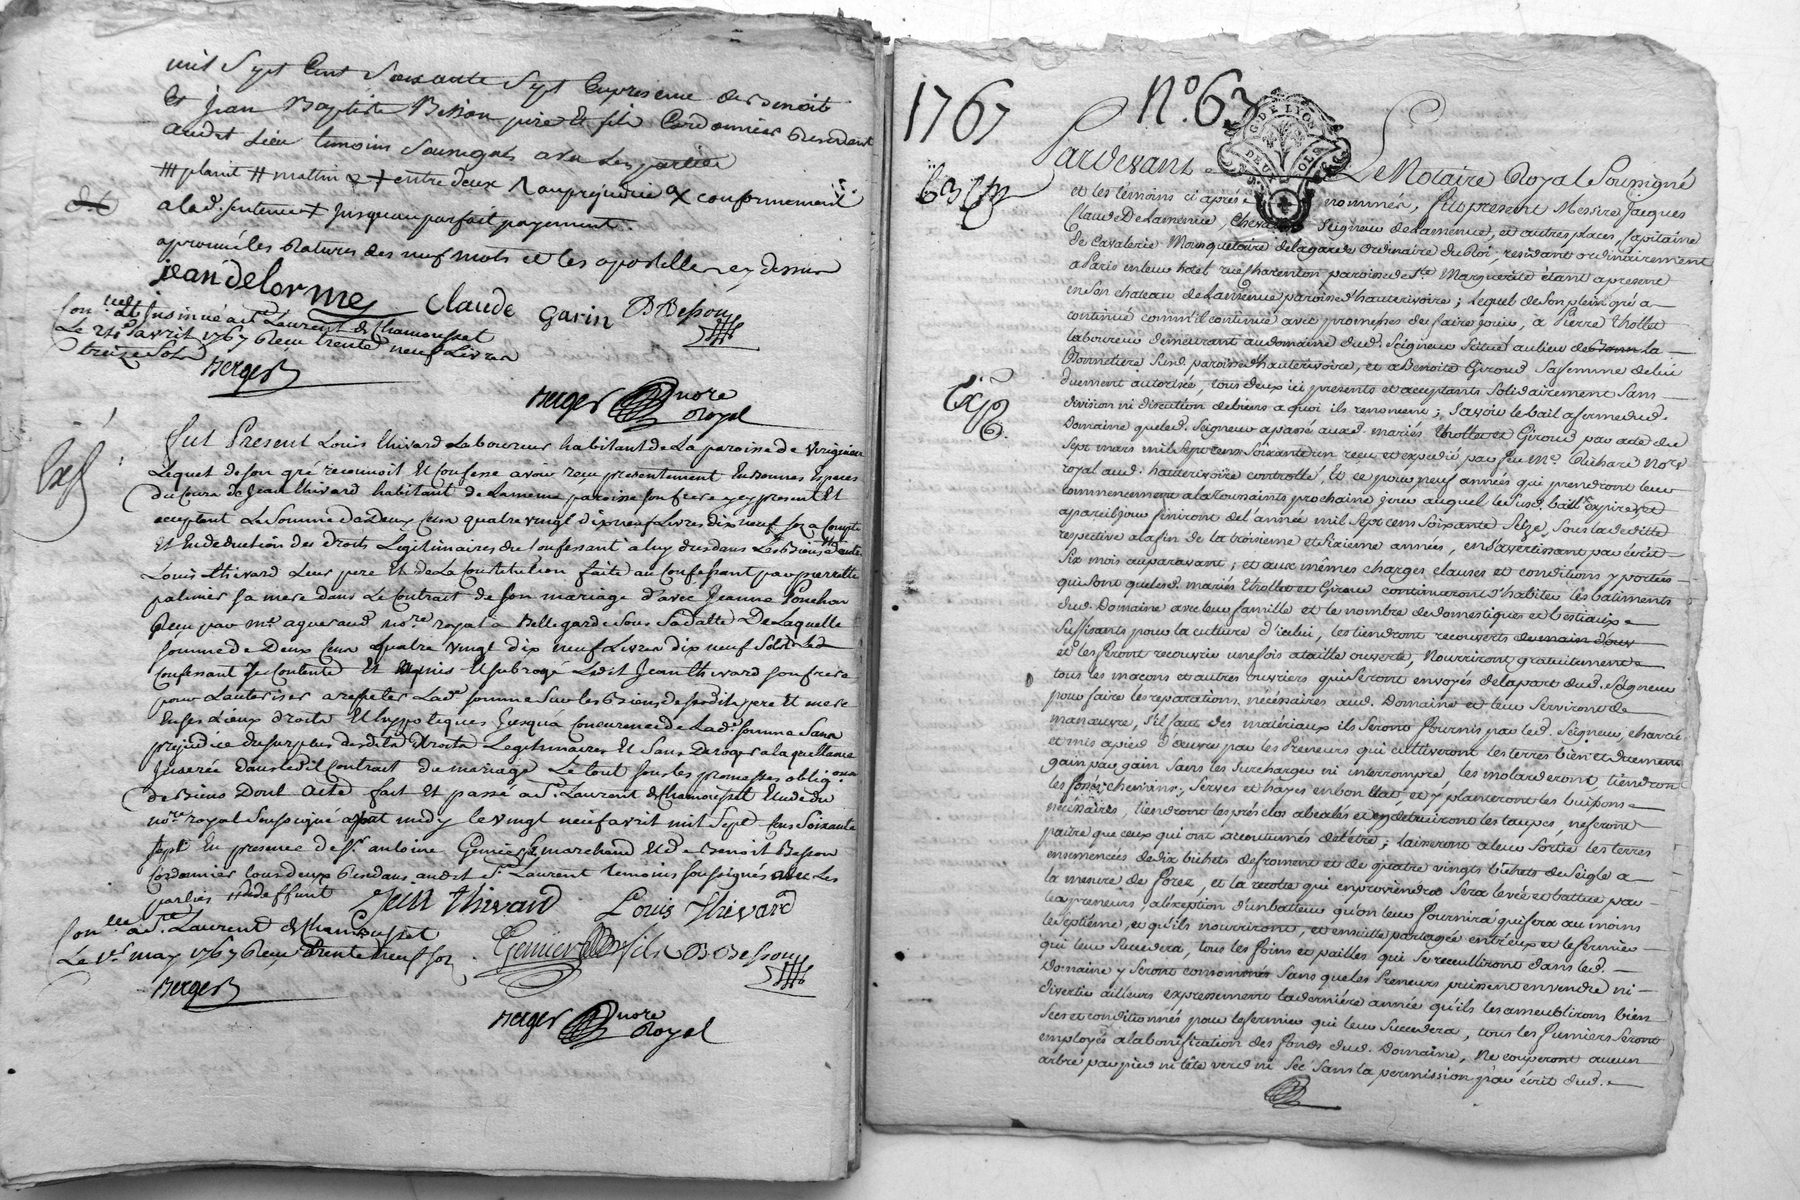 mil Sept Cent Soixante Sept En presence de Benoit
Et Jean Baptiste Besson pere Et fils Cordonnier Residant
audit Lieu temoins Soussignés avec Les parties
plait matin entre deux au prejudice conformement
a lad. sentence Jusqu'au parfait payement.
approuvé les Ratures des neuf mots et les apostilles cy dessus
jean delorme Claude Garin BBesson
Con.lé et Insinué a St Laurent de Chamousset
Le 24e avril 1767 Reçu trente neuf Livres
treize Sols
Berger
Berger nore
Royal
Exp
Fut Present Louis Thivard Laboureur habitant de La paroisse de Virigneu
Lequel de son gré reconnoit Et Confesse avoir reçu presentement En bonnes Especes
du Cours de Jean Thivard habitant de La meme paroisse son frere y present Et
acceptant La Somme de Deux Cens quatre vingt dix neuf Livres dix neuf sols a Compte
Et En deduction des droits Legitimaires du Confessant a luy dus dans Les Biens
Louis thivard Leur pere Et de La Constitution faite au Confessant par pierrette
palmier sa mere dans Le Contrat de son mariage d'avec Jeanne Ponchon
Reçu par Me nore royal a Bellegarde Sous Sa datte De Laquelle
Somme de Deux Cens quatre vingt dix neuf Livres dix neuf Sols Led
Confessant Se Contente Et Subrogé Ledit Jean Thivard son frere
pour L'autoriser a repeter Lad. somme Sur les Biens de sesdits pere Et mere
En ses Lieux droits Et hyppoteques Jusqua Concurrence de Lad. somme Sans
prejudice du surplus desdits droits Legitimaires Et Sans Deroger a la quittance
Inserée dans Ledit Contrat de mariage Le tout sous les promesses oblig.ons
de Biens Dont Acte fait Et passé a St. Laurent de Chamousset Etude du
nore royal Soussigné avant midy le vingt neuf avril mil Sept Cens Soixante
Sept En presence de Sr antoine Genier marchand Et de Benoit Besson
Cordonnier tous deux Residans audit St Laurent temoins soussignés avec Les
parties deffunt Jean Thivard Louis Thivard
Con.lé a St. Laurent de Chamousset
Le 1er may 1767 Reçu trente neuf sols
Genier fils BBesson
Berger
Berger nore
Royal
1767 No. 63
G. DE LYON
DEUX SOLS
Pardevant Le Notaire Royal Soussigné
et les témoins ci après nommés, fût présent Messire Jacques
Claude De Lamenüe, Chevalier Seigneur de Lamenüe, et autres places, Capitaine
de Cavalerie Mousquetaire de la garde ordinaire du Roi, résidant ordinairement
a Paris en leur hotel rüe Charenton paroisse de Ste. Marguerite étant a présent
en son chateau de Lamenüe paroisse d'hauterivoire ; lequel de son plein gré a
continué comm'il continue avec promesses de faire jouir, a Pierre thollet
laboureur demeurant au domaine dud. Seigneur Situé au lieu de la
Bonnetiere Susd. paroisse d'hauterivoire, et a Benoite Giroud Sa femme de lui
duement autorisée, tous deux ici présents et acceptants Solidairement Sans
division ni discution de biens a quoi ils renoncent ; Savoir le bail a ferme dud.
Domaine que led. Seigneur a passé auxd. mariés thollet et Giroud par acte du
Sept mars mil Sept cens Soixante un recu et expedié par feu Me. Nore
royal aud. hauterivoire controllé, Et ce pour neuf années qui prendront leur
commencement a la toussaints prochaine jour auquel le Susd. bail expire et
a pareil jour finiront de l'année mil Sept cens soixante Seize, Sous la deditte
respective a la fin de la troisieme et Sixieme années, en S'avertissant par écrit
Six mois auparavant ; et aux mêmes charges clauses et conditions y portées
qui sont que lesd. mariés thollet et Giroud continueront d'habiter les bâtiments
dud. Domaine avec leur famille et le nombre de domestiques et bestiaux
Suffisants pour la culture d'icelui, les tiendront recouverts de main d'ouv
et les feront recouvrir une fois a taille ouverte, Nourriront gratuitement
tous les maçons et autres ouvriers qui Seront envoyés de la part dud. Seigneur
pour faire les réparations nécésaires aud. Domaine et leur Serviront de
manœuvre, S'il faut des matériaux ils Seront fournis par led. Seigneur, charrié
et mis a pied d'œuvre par les Preneurs qui cultiveront les terres bien et duement
gain par gain Sans les Surcharger ni interrompre, les molarderont, tiendront
les fossés, chevains, Serves et hayes en bon état, et y planteront les buissons
nécésaires tiendront les prés clos abealés et en détruiront les taupes, ne feront
paitre que ceux qui ont accoutumés de l'être ; laisseront a leur Sortie les terres
ensemencées de dix bichets de froment et de quatre vingts bichets de Seigle a
la mesure de forez, et la récolte qui en proviendra Sera levée et battue par
les preneurs a l'éxception d'un batteur qu'on leur fournira qui fera au moins
le Septieme, et qu'ils nourriront, et ensuitte partagée entr'eux et le fermier
qui leur Succedera, tous les foins et pailles qui Se receuilliront dans led.
Domaine y Seront consommés Sans que les Preneurs puissent en vendre ni
divertir ailleurs expressement la derniére année qu'ils les ameubliront bien
Secs et conditionnés pour le fermier qui leur Succedera, tous les fumiers Seront
employés a la bonification des fonds dud. Domaine, Ne couperont aucun
arbre par pied ni tête verd ni Sec Sans la permission par écrit dud.